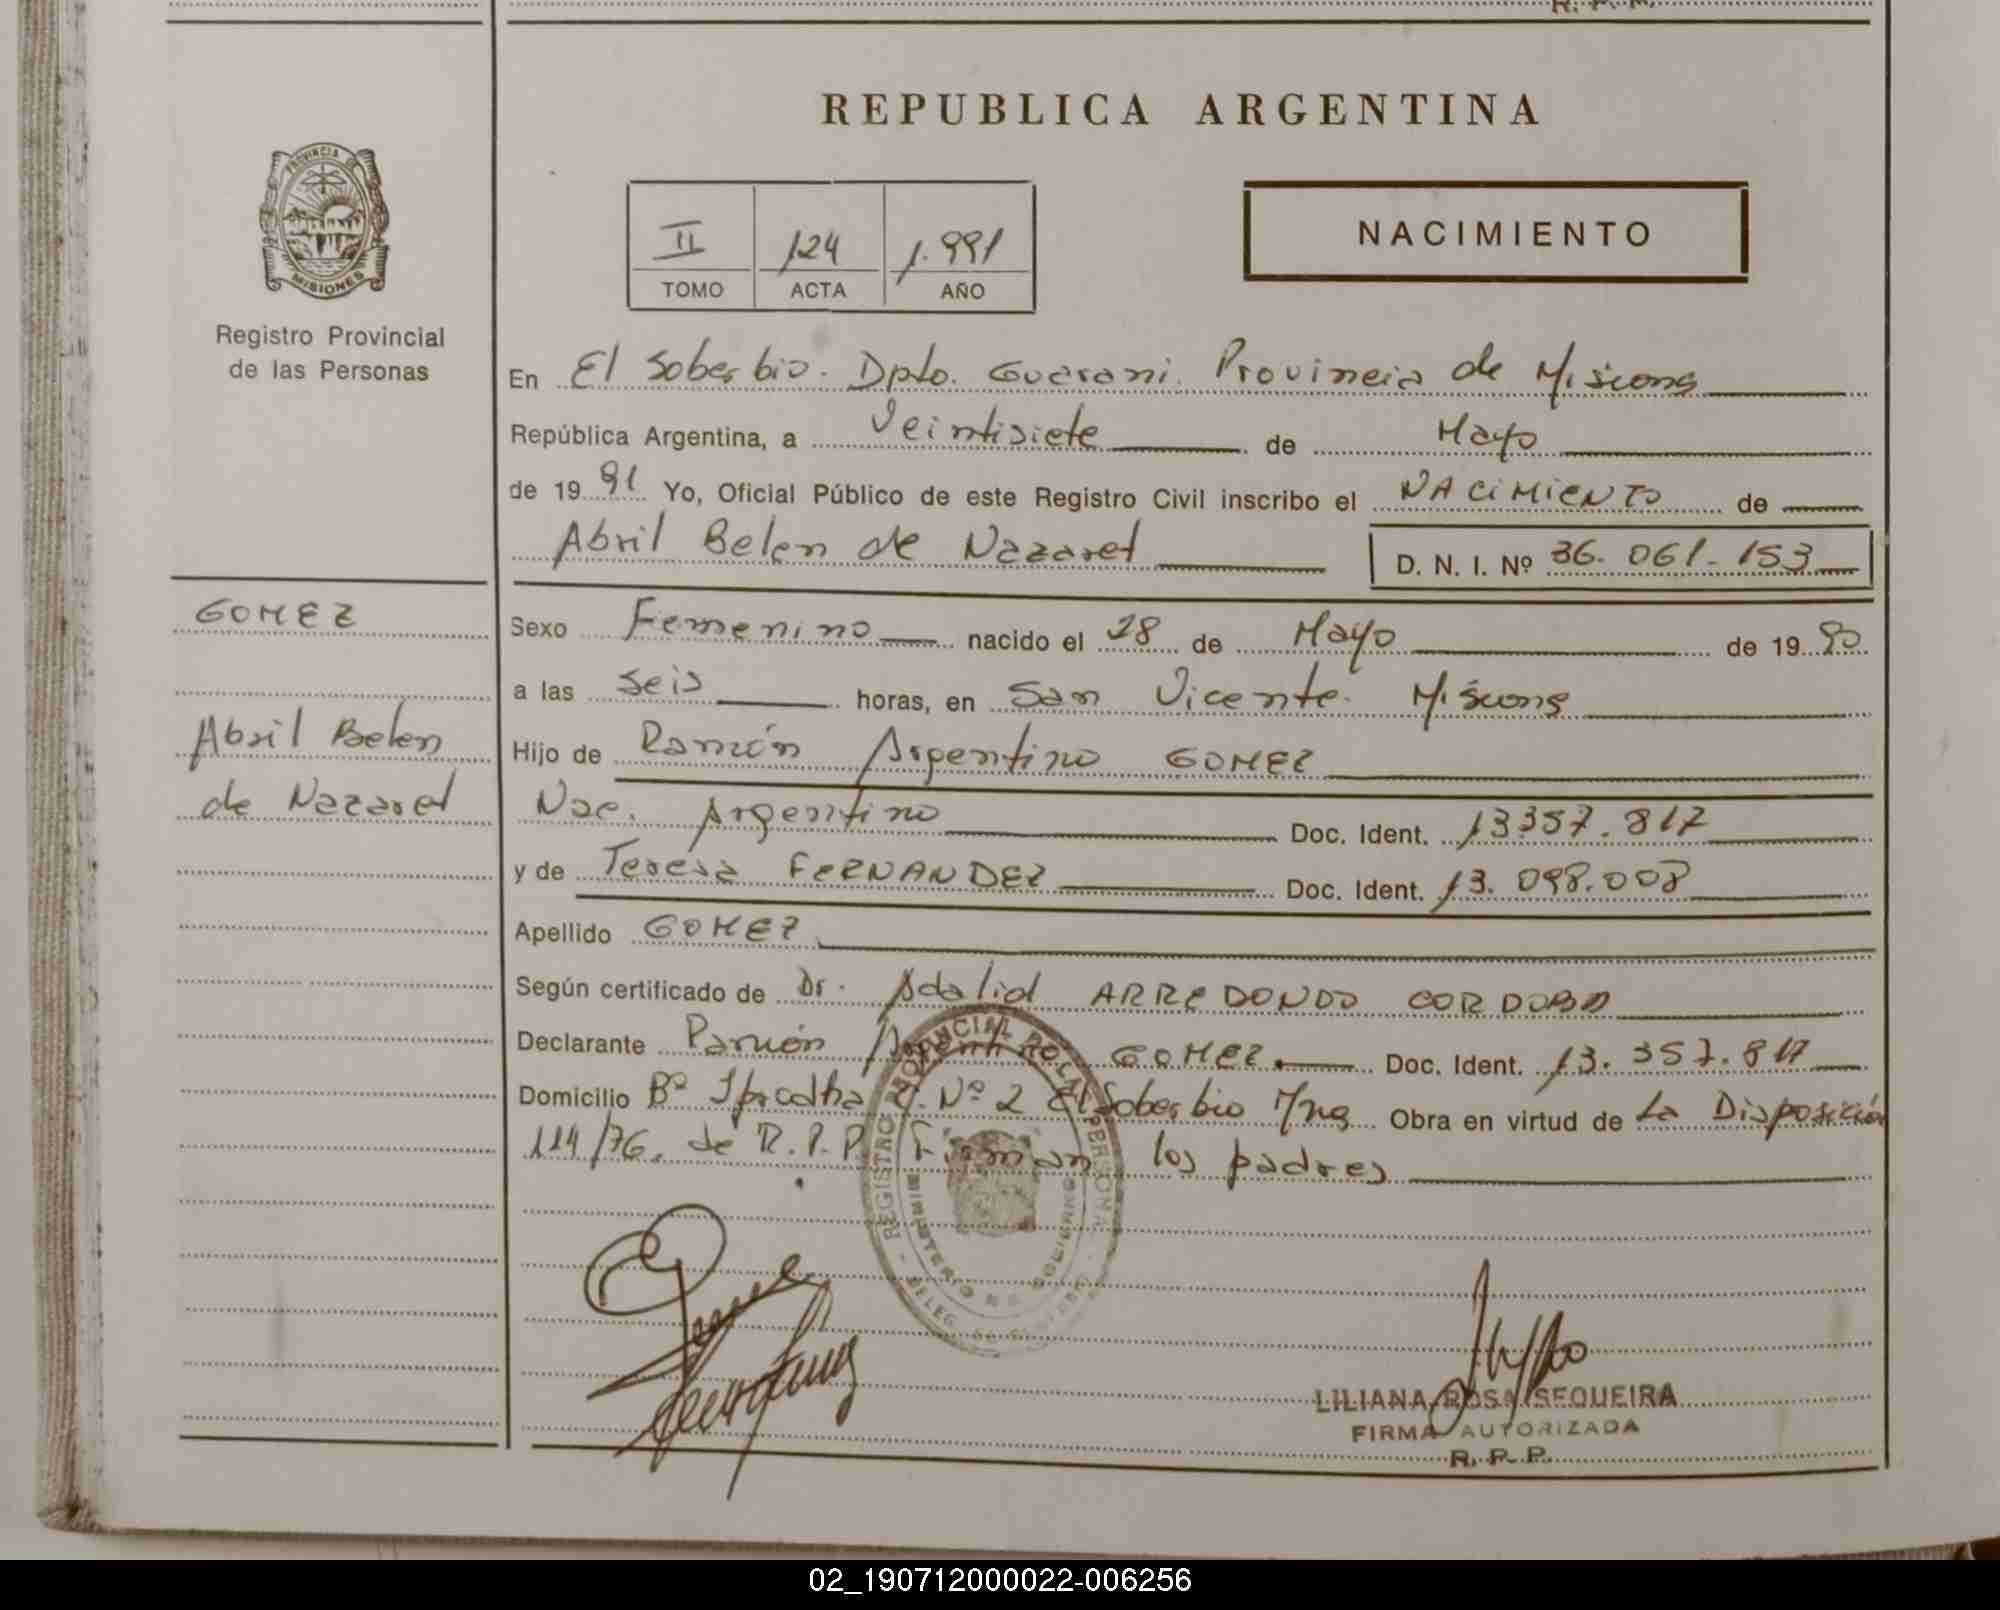 R. P. P.
REPUBLICA ARGENTINA
PROVINCIA DE
MISIONES
Registro Provincial
de las Personas
II 124 1.991
TOMO ACTA AÑO
NACIMIENTO
En El Soberbio. Dpto. Guarani. Provincia de Misiones
República Argentina, a Veintisiete de Mayo
de 1991 Yo, Oficial Público de este Registro Civil inscribo el NACIMIENTO de
Abril Belen de Nazaret D. N. I. Nº 36.061.153
GOMEZ
Abril Belen
de Nazaret
Sexo Femenino nacido el 28 de Mayo de 1990
a las seis horas, en San Vicente. Misiones
Hijo de Ramón Argentino GOMEZ
Nac. Argentino Doc. Ident. 13.357.817
y de Teresa FERNANDEZ Doc. Ident. 13.098.008
Apellido GOMEZ
Según certificado de Dr. Adalid ARREDONDO CORDOBA
Declarante Ramón Argentino GOMEZ. Doc. Ident. 13.357.817
Domicilio Bº Nº 2 El Soberbio Mnes Obra en virtud de La Disposición
114/76. de R.P.P. Firman los padres
REGISTRO PROVINCIAL DE LAS PERSONAS
MINISTERIO DE GOBIERNO
LILIANA ROSA SEQUEIRA
FIRMA AUTORIZADA
R. P. P.
02_190712000022-006256